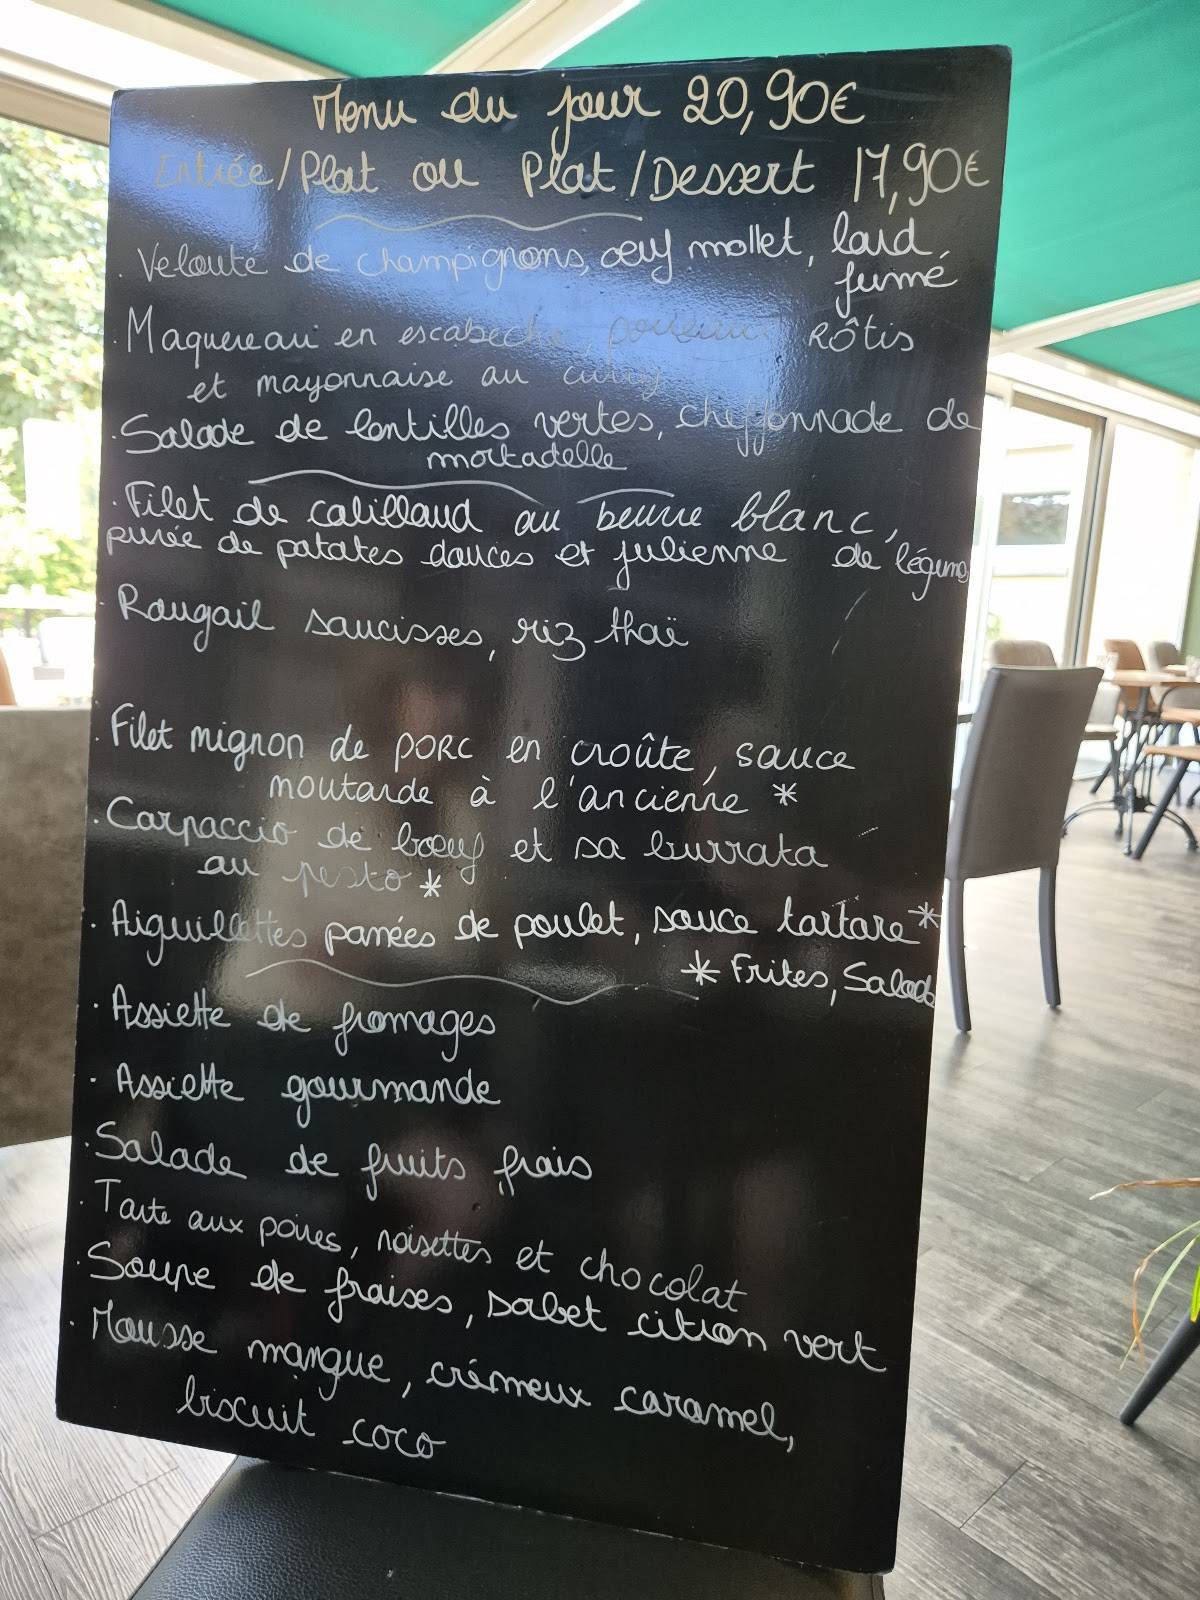 Menu du jour 20,90€
Entrée/Plat ou Plat/Dessert 17,90€
. Velouté de champignons, œuf mollet, lard
fumé
. Maquereau en escabeche, poireaux Rôtis
et mayonnaise au curry
. Salade de lentilles vertes, cheffonnade de
mortadelle
. Filet de cabillaud au beurre blanc,
purée de patates douces et julienne de légumes
. Rougail saucisses, riz thaï
. Filet mignon de porc en croûte, sauce
moutarde à l'ancienne *
. Carpaccio de bœuf et sa burrata
au pesto *
. Aiguillettes panées de poulet, sauce tartare *
* Frites, Salade
. Assiette de fromages
. Assiette gourmande
. Salade de fruits frais
. Tarte aux poires, noisettes et chocolat
. Soupe de fraises, sorbet citron vert
. Mousse mangue, crémeux caramel,
biscuit coco